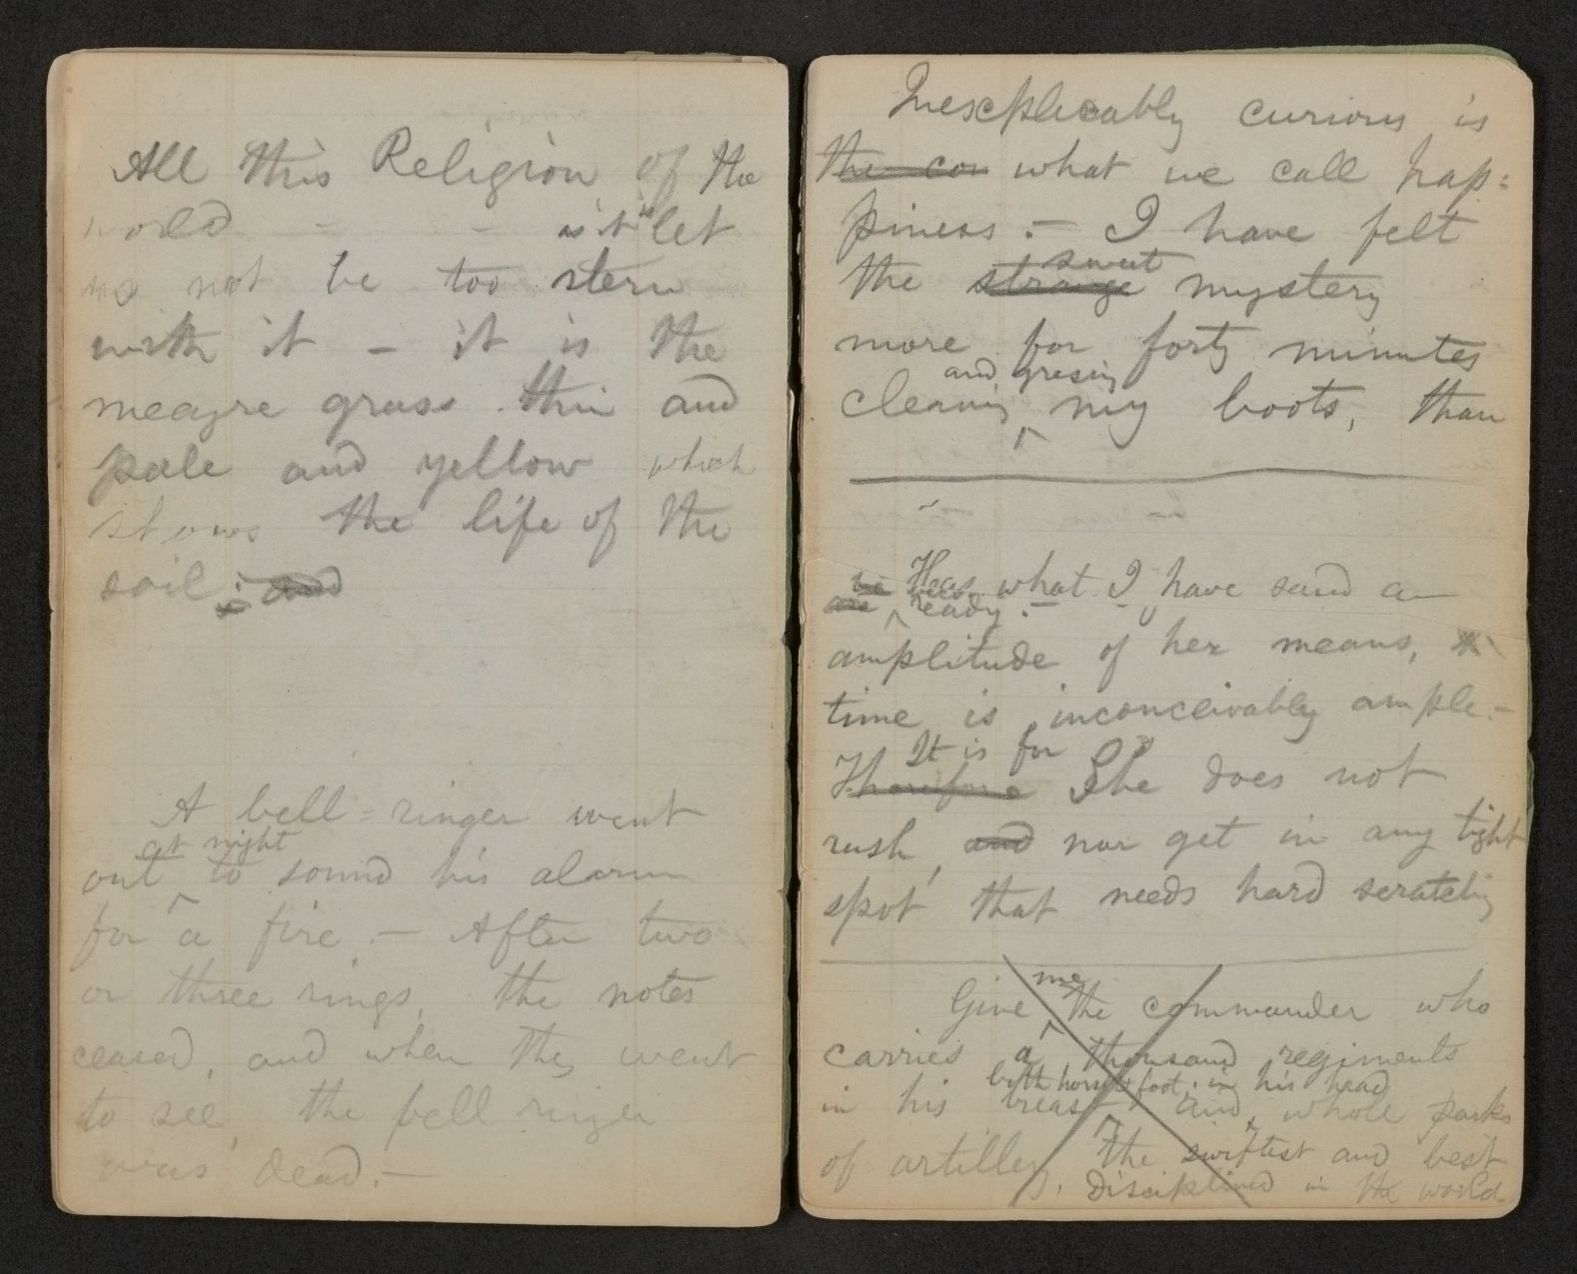 All this Religion of the
world — — is it" let
us not be too stern
with it – it is the
meagre grass thin and
pale and yellow which
shows the life of the
soil; and
A bell-ringer went
at night
out to sound his alarm
for a fire. — After two
or three rings, the notes
ceased, and when they went
to see, the bell ringer
was dead. —
Inexplicably curious is
the con what we call hap=
piness. — I have felt
sweet
the strange mystery
more for forty minutes
and gresing
cleaning my boots, than
Heas what I have said an
are ready. —
amplitude of her means,
time is inconceivably ample. –
It is for
Therefore She does not
rush, and nor get in any tight
spot that needs hard scratching
me
Give the commander who
carries a thousand regiments
both horse & foot, in his head
in his breast and, whole parks
of artillery, the swiftest and best
disciplined in the world